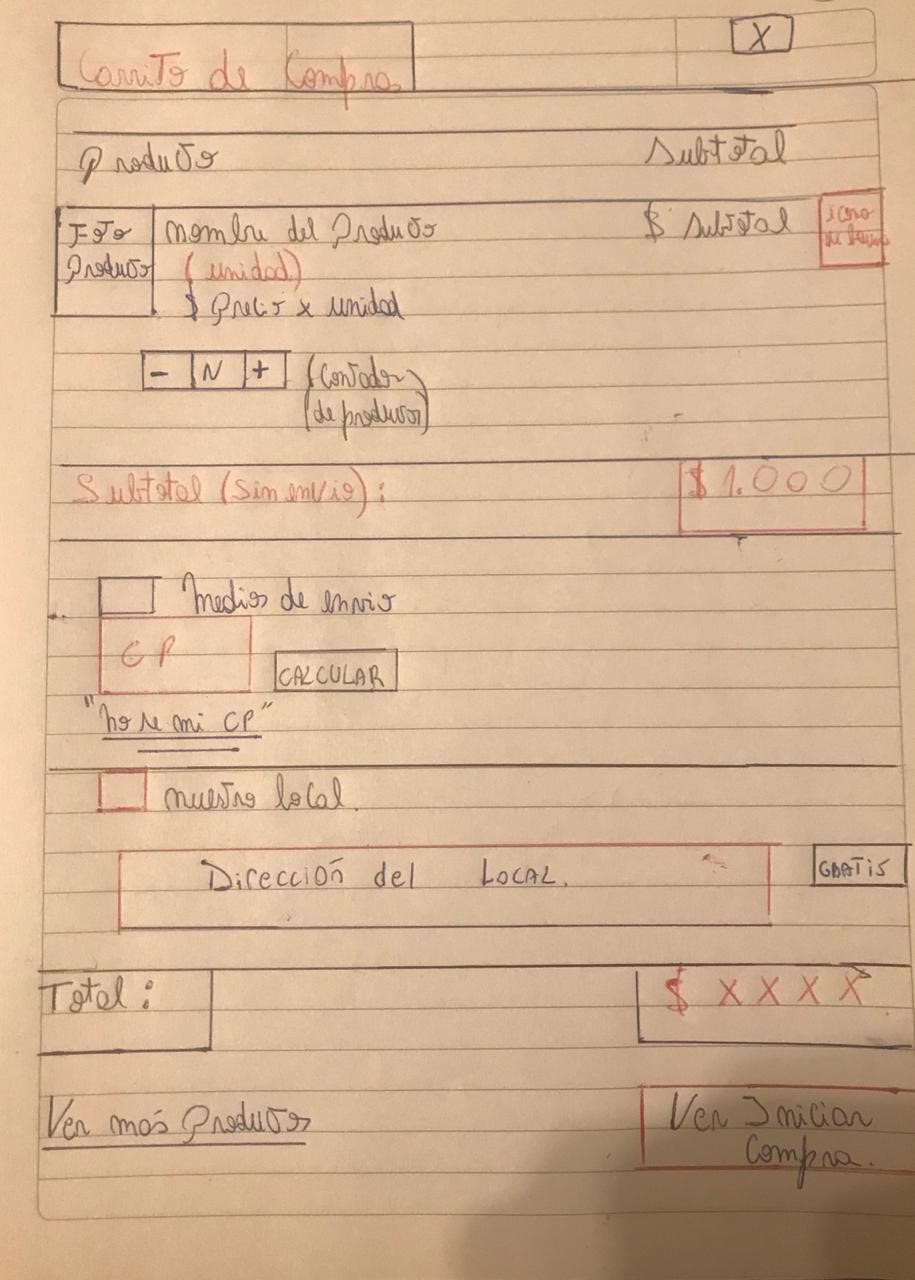 Carrito de Compra
X
Producto Subtotal
Foto Producto
nombre del Producto $ Subtotal
icono de
(unidad)
$ Precio x unidad
- N + (Contador
de productos)
Subtotal (Sin envio): $1.000
Medios de envio
CP
CALCULAR
"no se mi CP"
nuestro local.
Dirección del LOCAL.
GRATIS
Total: $ X X X X
Ver más Productos
Ver Iniciar
Compra.